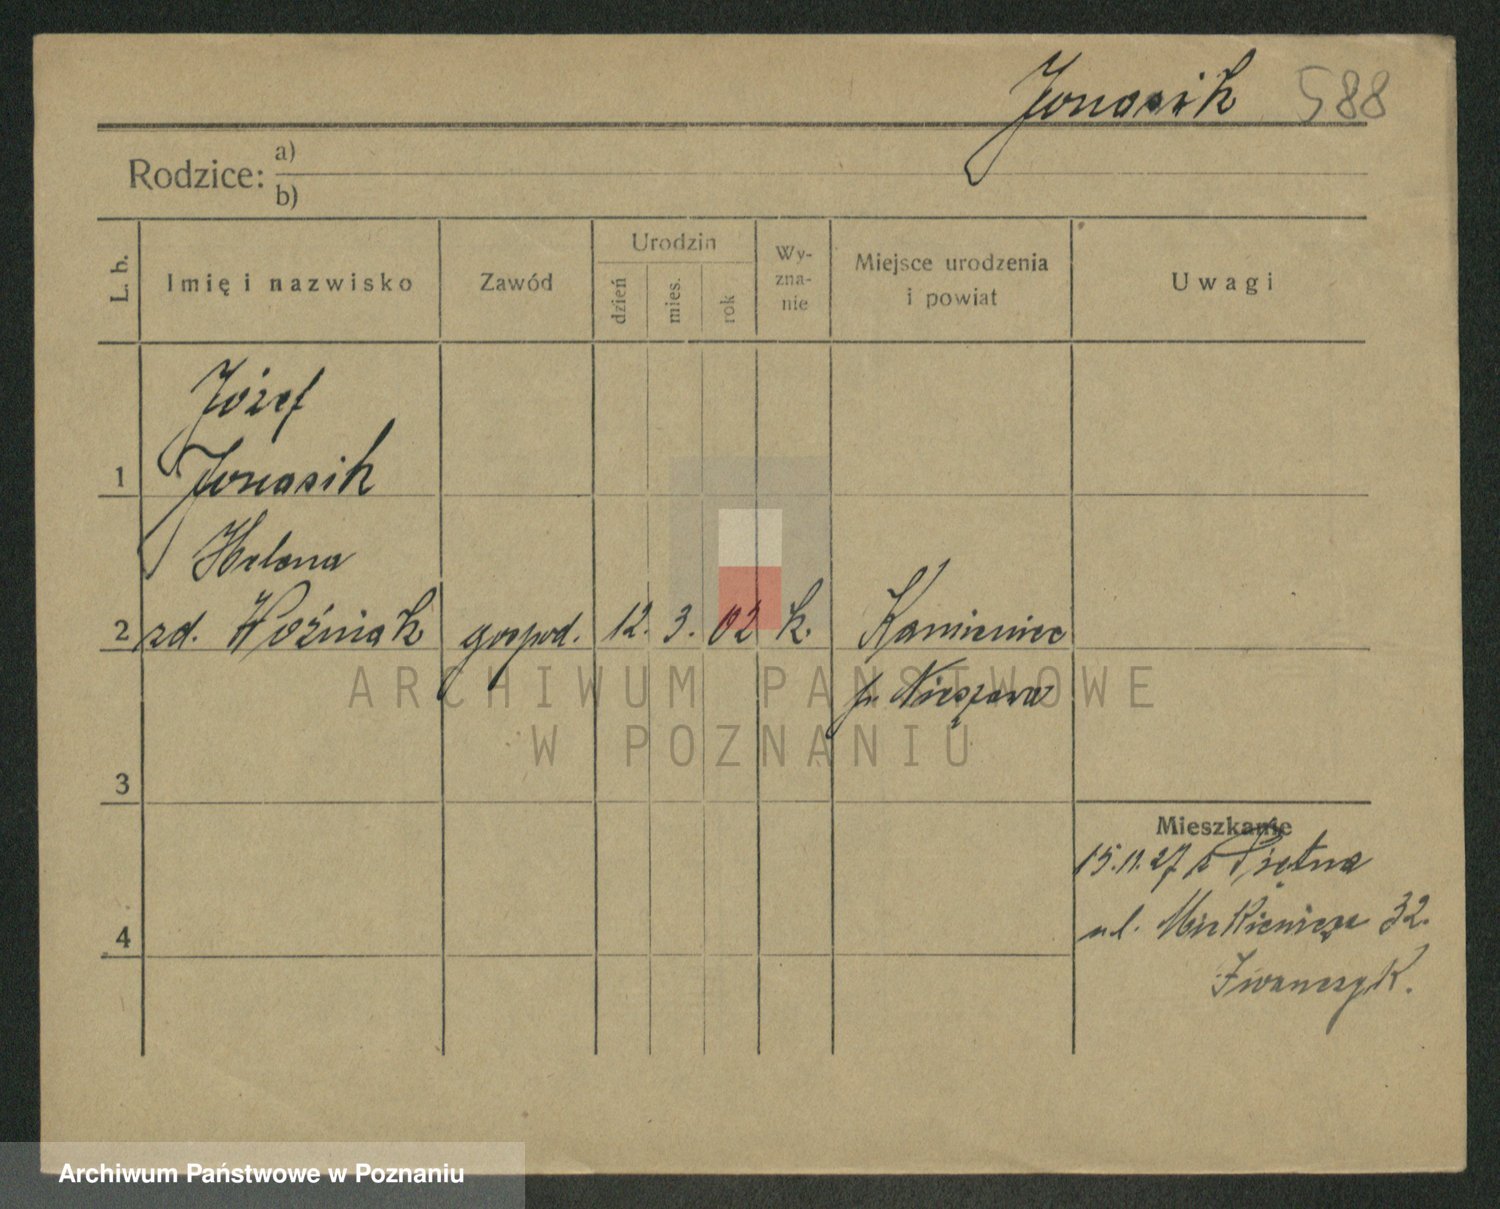 Jonasik 588
Rodzice: a)
b)
L. b.
Imię i nazwisko
Zawód
Urodzin
dzień
mies.
rok
Wy-
zna-
nie
Miejsce urodzenia
i powiat
Uwagi
Józef
1 Jonasik
Helena
2 zd. Woźniak gospod. 12. 3. 02 k. Kamieniec
p. Nieszawa
3
Mieszkanie
15.11.27 z Piętna
4
ul. Mickiewicza 32.
Iwanczyk.
ARCHIWUM PAŃSTWOWE
W POZNANIU
Archiwum Państwowe w Poznaniu